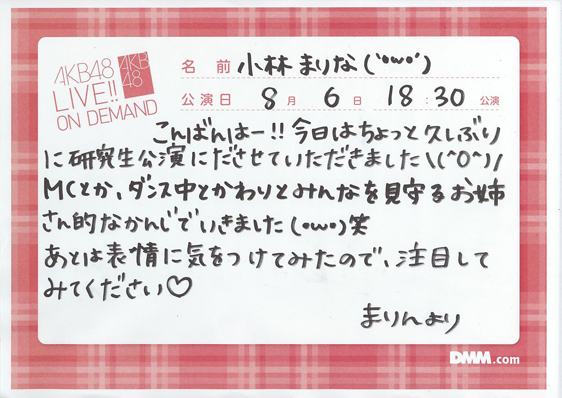 AKB48
LIVE!!
ON DEMAND
AKB
48
名前 小林まりな(´•ω•`)
公演日 8月6日 18:30公演
こんばんはー!!今日はちょっと久しぶり
に研究生公演にださせていただきました\\(^O^)//
MCとか、ダンス中とかわりとみんなを見守るお姉
さん的なかんじでいきました(•ω•)笑
あとは表情に気をつけてみたので、注目して
みてください♡
まりんより
DMM.com